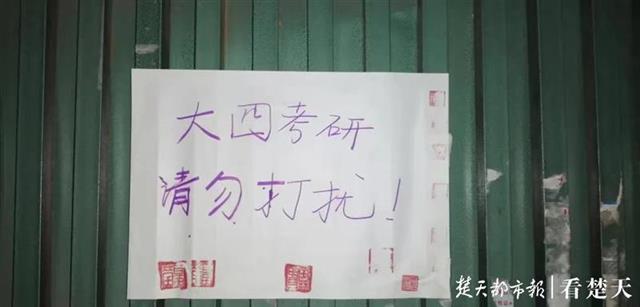 大四考研
请勿打扰!
楚天都市报|看楚天